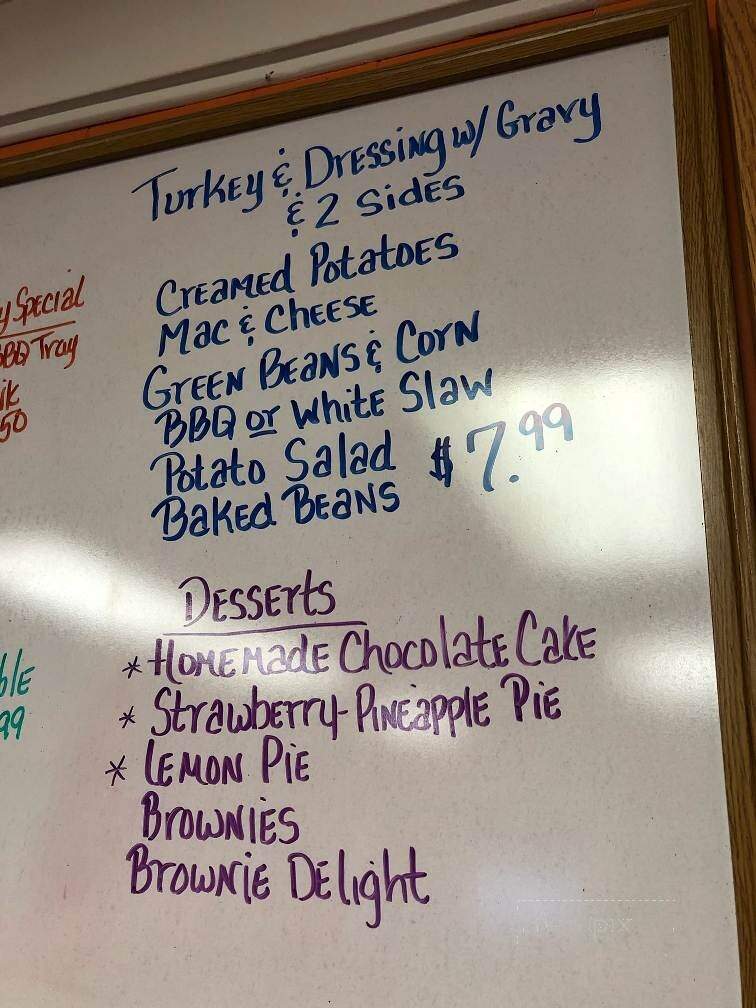 Turkey & Dressing w/ Gravy
& 2 Sides
Creamed Potatoes
Mac & Cheese
Green Beans & Corn
BBQ or White Slaw
Potato Salad $7.99
Baked Beans
Desserts
* Homemade Chocolate Cake
* Strawberry-Pineapple Pie
* Lemon Pie
Brownies
Brownie Delight
Special
BBQ Tray
50
99